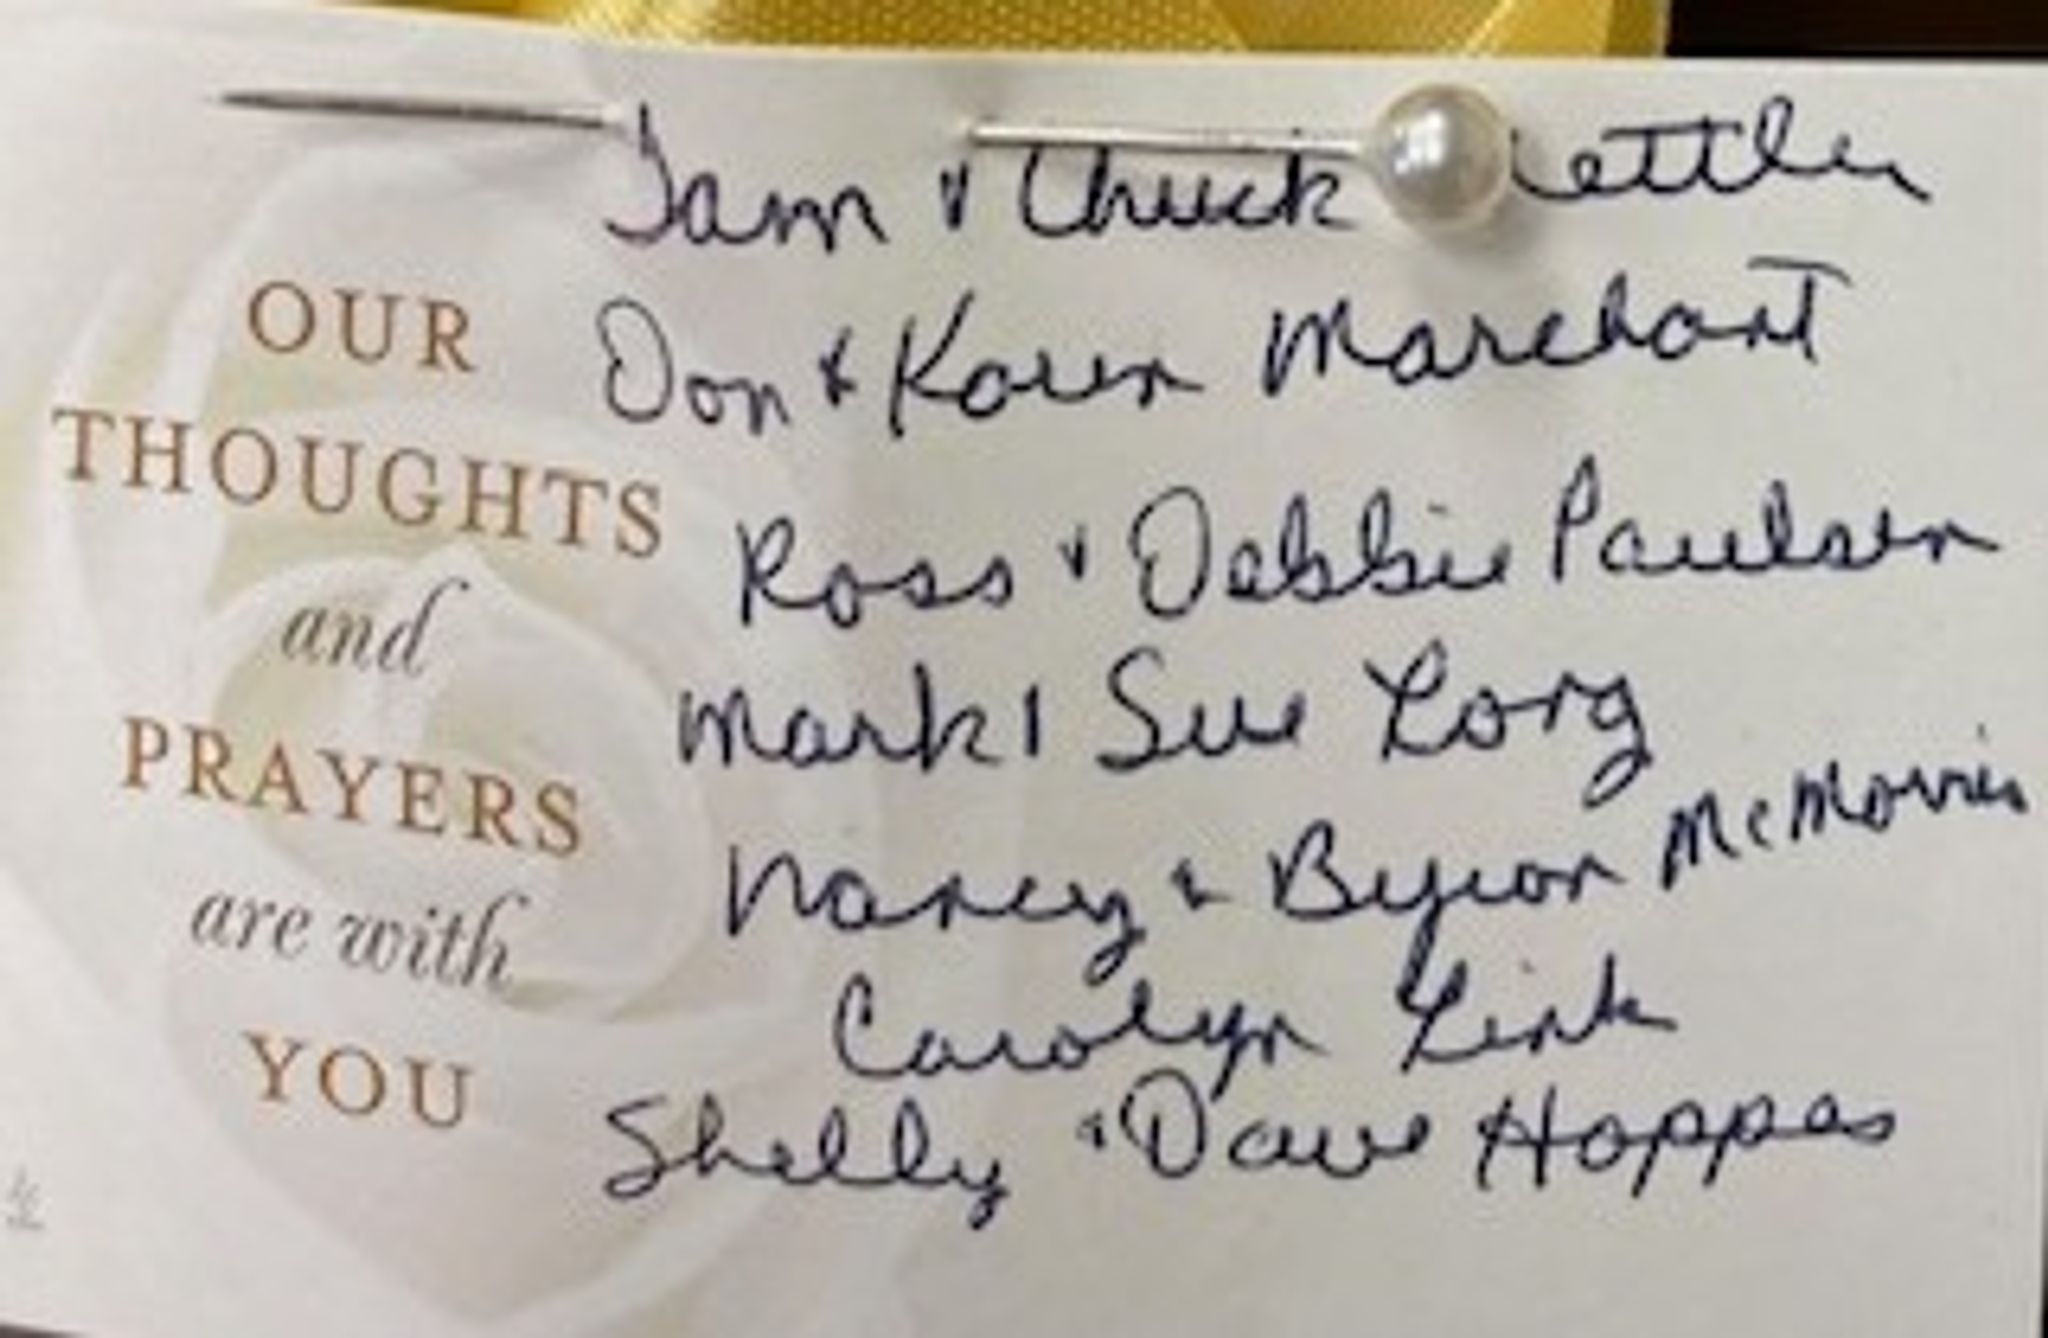 OUR
THOUGHTS
and
PRAYERS
are with
YOU
Tam & Chuck
Don & Karen Marchant
Ross & Debbie Paulsen
Mark & Sue Long
Nancy & Byron McMorris
Carolyn Link
Shelly & Dave Hoppes